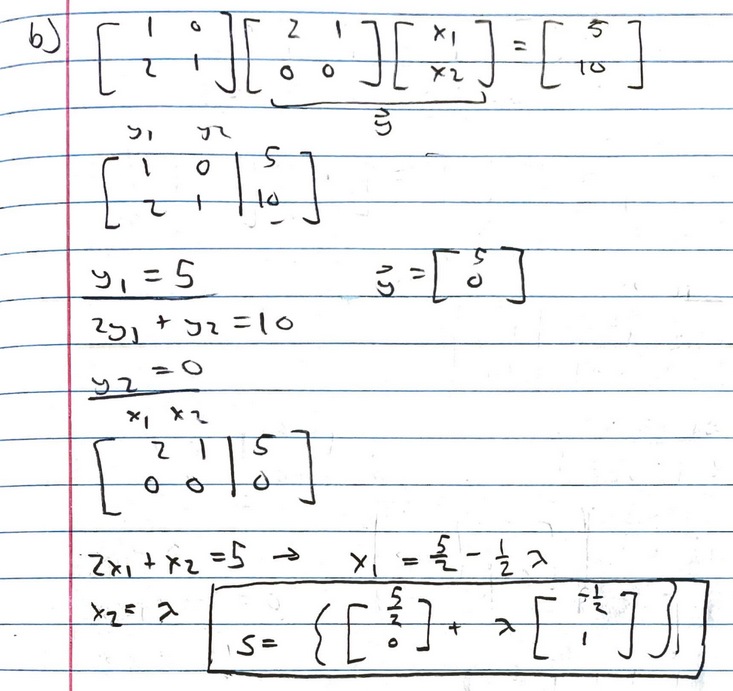 b) [1 0; 2 1] [2 1; 0 0] [x1; x2] = [5; 10]
y⃗
y1 y2
[1 0 | 5; 2 1 | 10]
y1 = 5
y⃗ = [5; 0]
2y1 + y2 = 10
y2 = 0
x1 x2
[2 1 | 5; 0 0 | 0]
2x1 + x2 = 5 → x1 = 5/2 - 1/2 λ
x2 = λ
S = { [5/2; 0] + λ [-1/2; 1] }